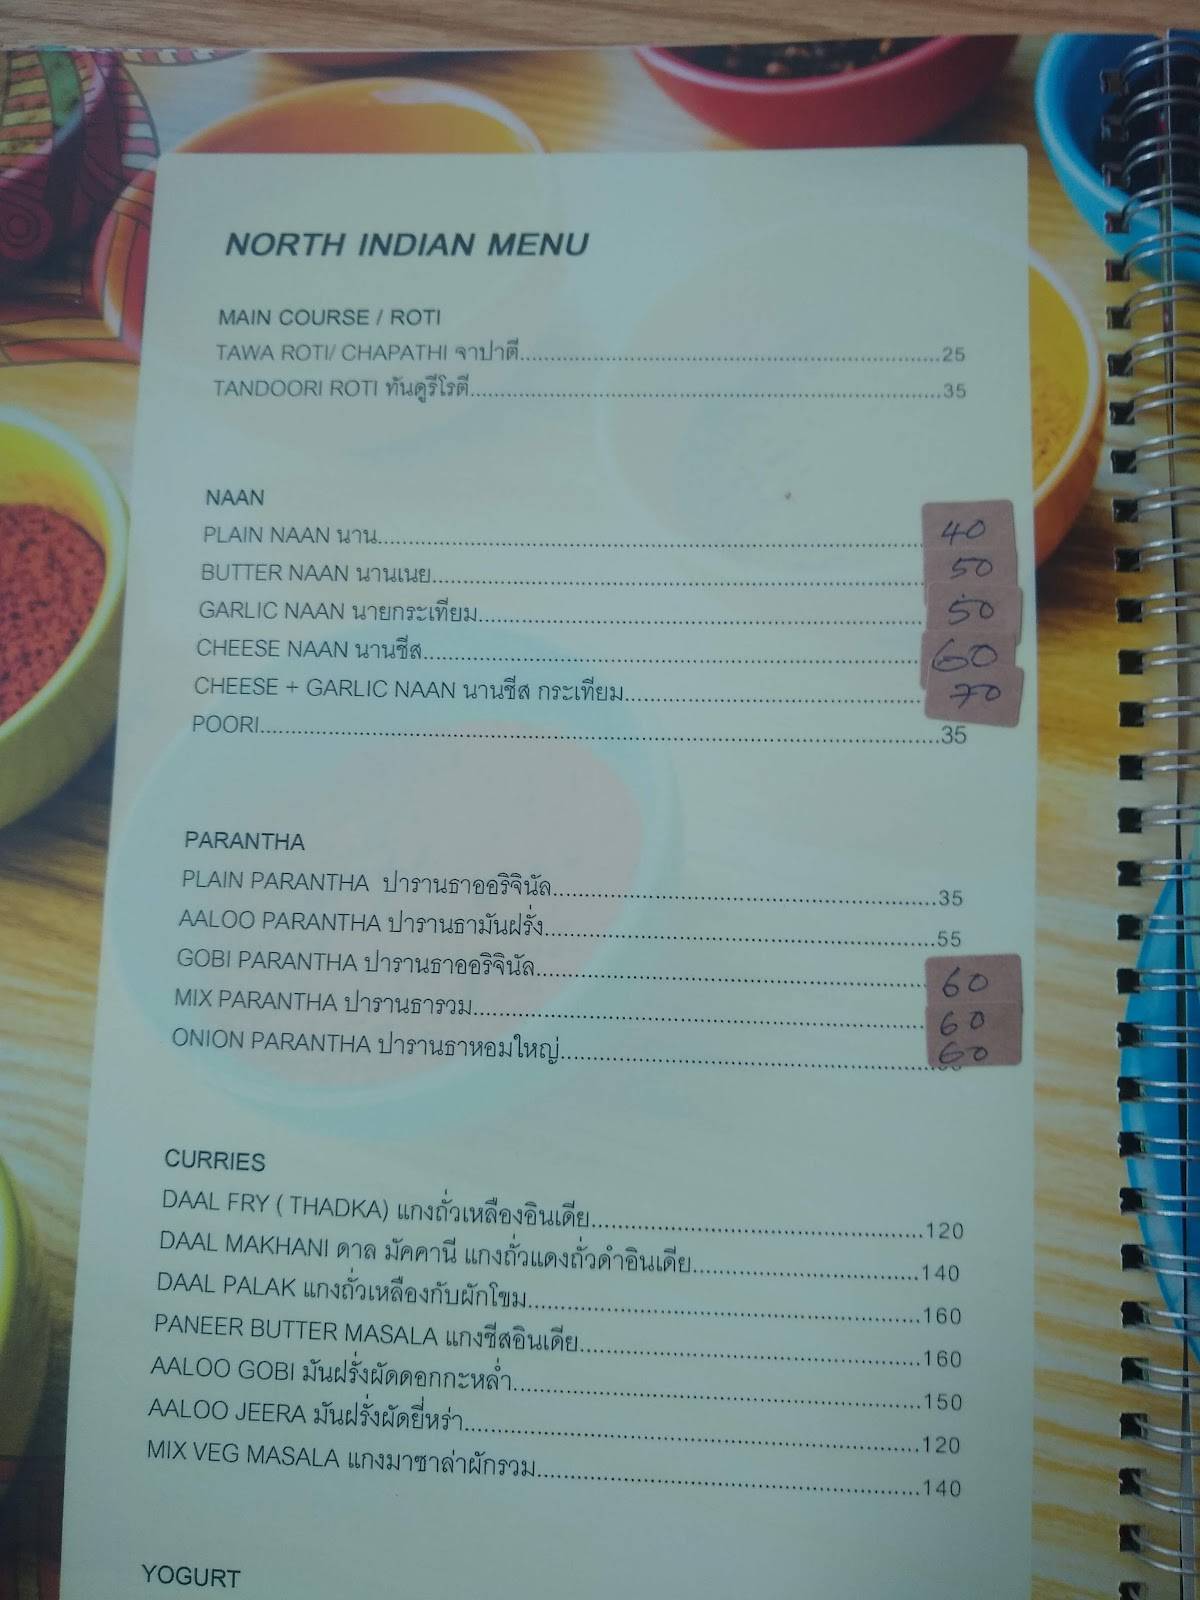 NORTH INDIAN MENU
MAIN COURSE / ROTI
TAWA ROTI/ CHAPATHI จาปาตี......25
TANDOORI ROTI ทันดูรีโรตี......35
NAAN
PLAIN NAAN นาน......40
BUTTER NAAN นานเนย......50
GARLIC NAAN นายกระเทียม......50
CHEESE NAAN นานชีส......60
CHEESE + GARLIC NAAN นานชีส กระเทียม......70
POORI......35
PARANTHA
PLAIN PARANTHA ปารานธาออริจินัล......35
AALOO PARANTHA ปารานธามันฝรั่ง......55
GOBI PARANTHA ปารานธาออริจินัล......60
MIX PARANTHA ปารานธารวม......60
ONION PARANTHA ปารานธาหอมใหญ่......60
CURRIES
DAAL FRY ( THADKA) แกงถั่วเหลืองอินเดีย......120
DAAL MAKHANI ดาล มัคคานี แกงถั่วแดงถั่วดำอินเดีย......140
DAAL PALAK แกงถั่วเหลืองกับผักโขม......160
PANEER BUTTER MASALA แกงชีสอินเดีย......160
AALOO GOBI มันฝรั่งผัดดอกกะหล่ำ......150
AALOO JEERA มันฝรั่งผัดยี่หร่า......120
MIX VEG MASALA แกงมาซาล่าผักรวม......140
YOGURT